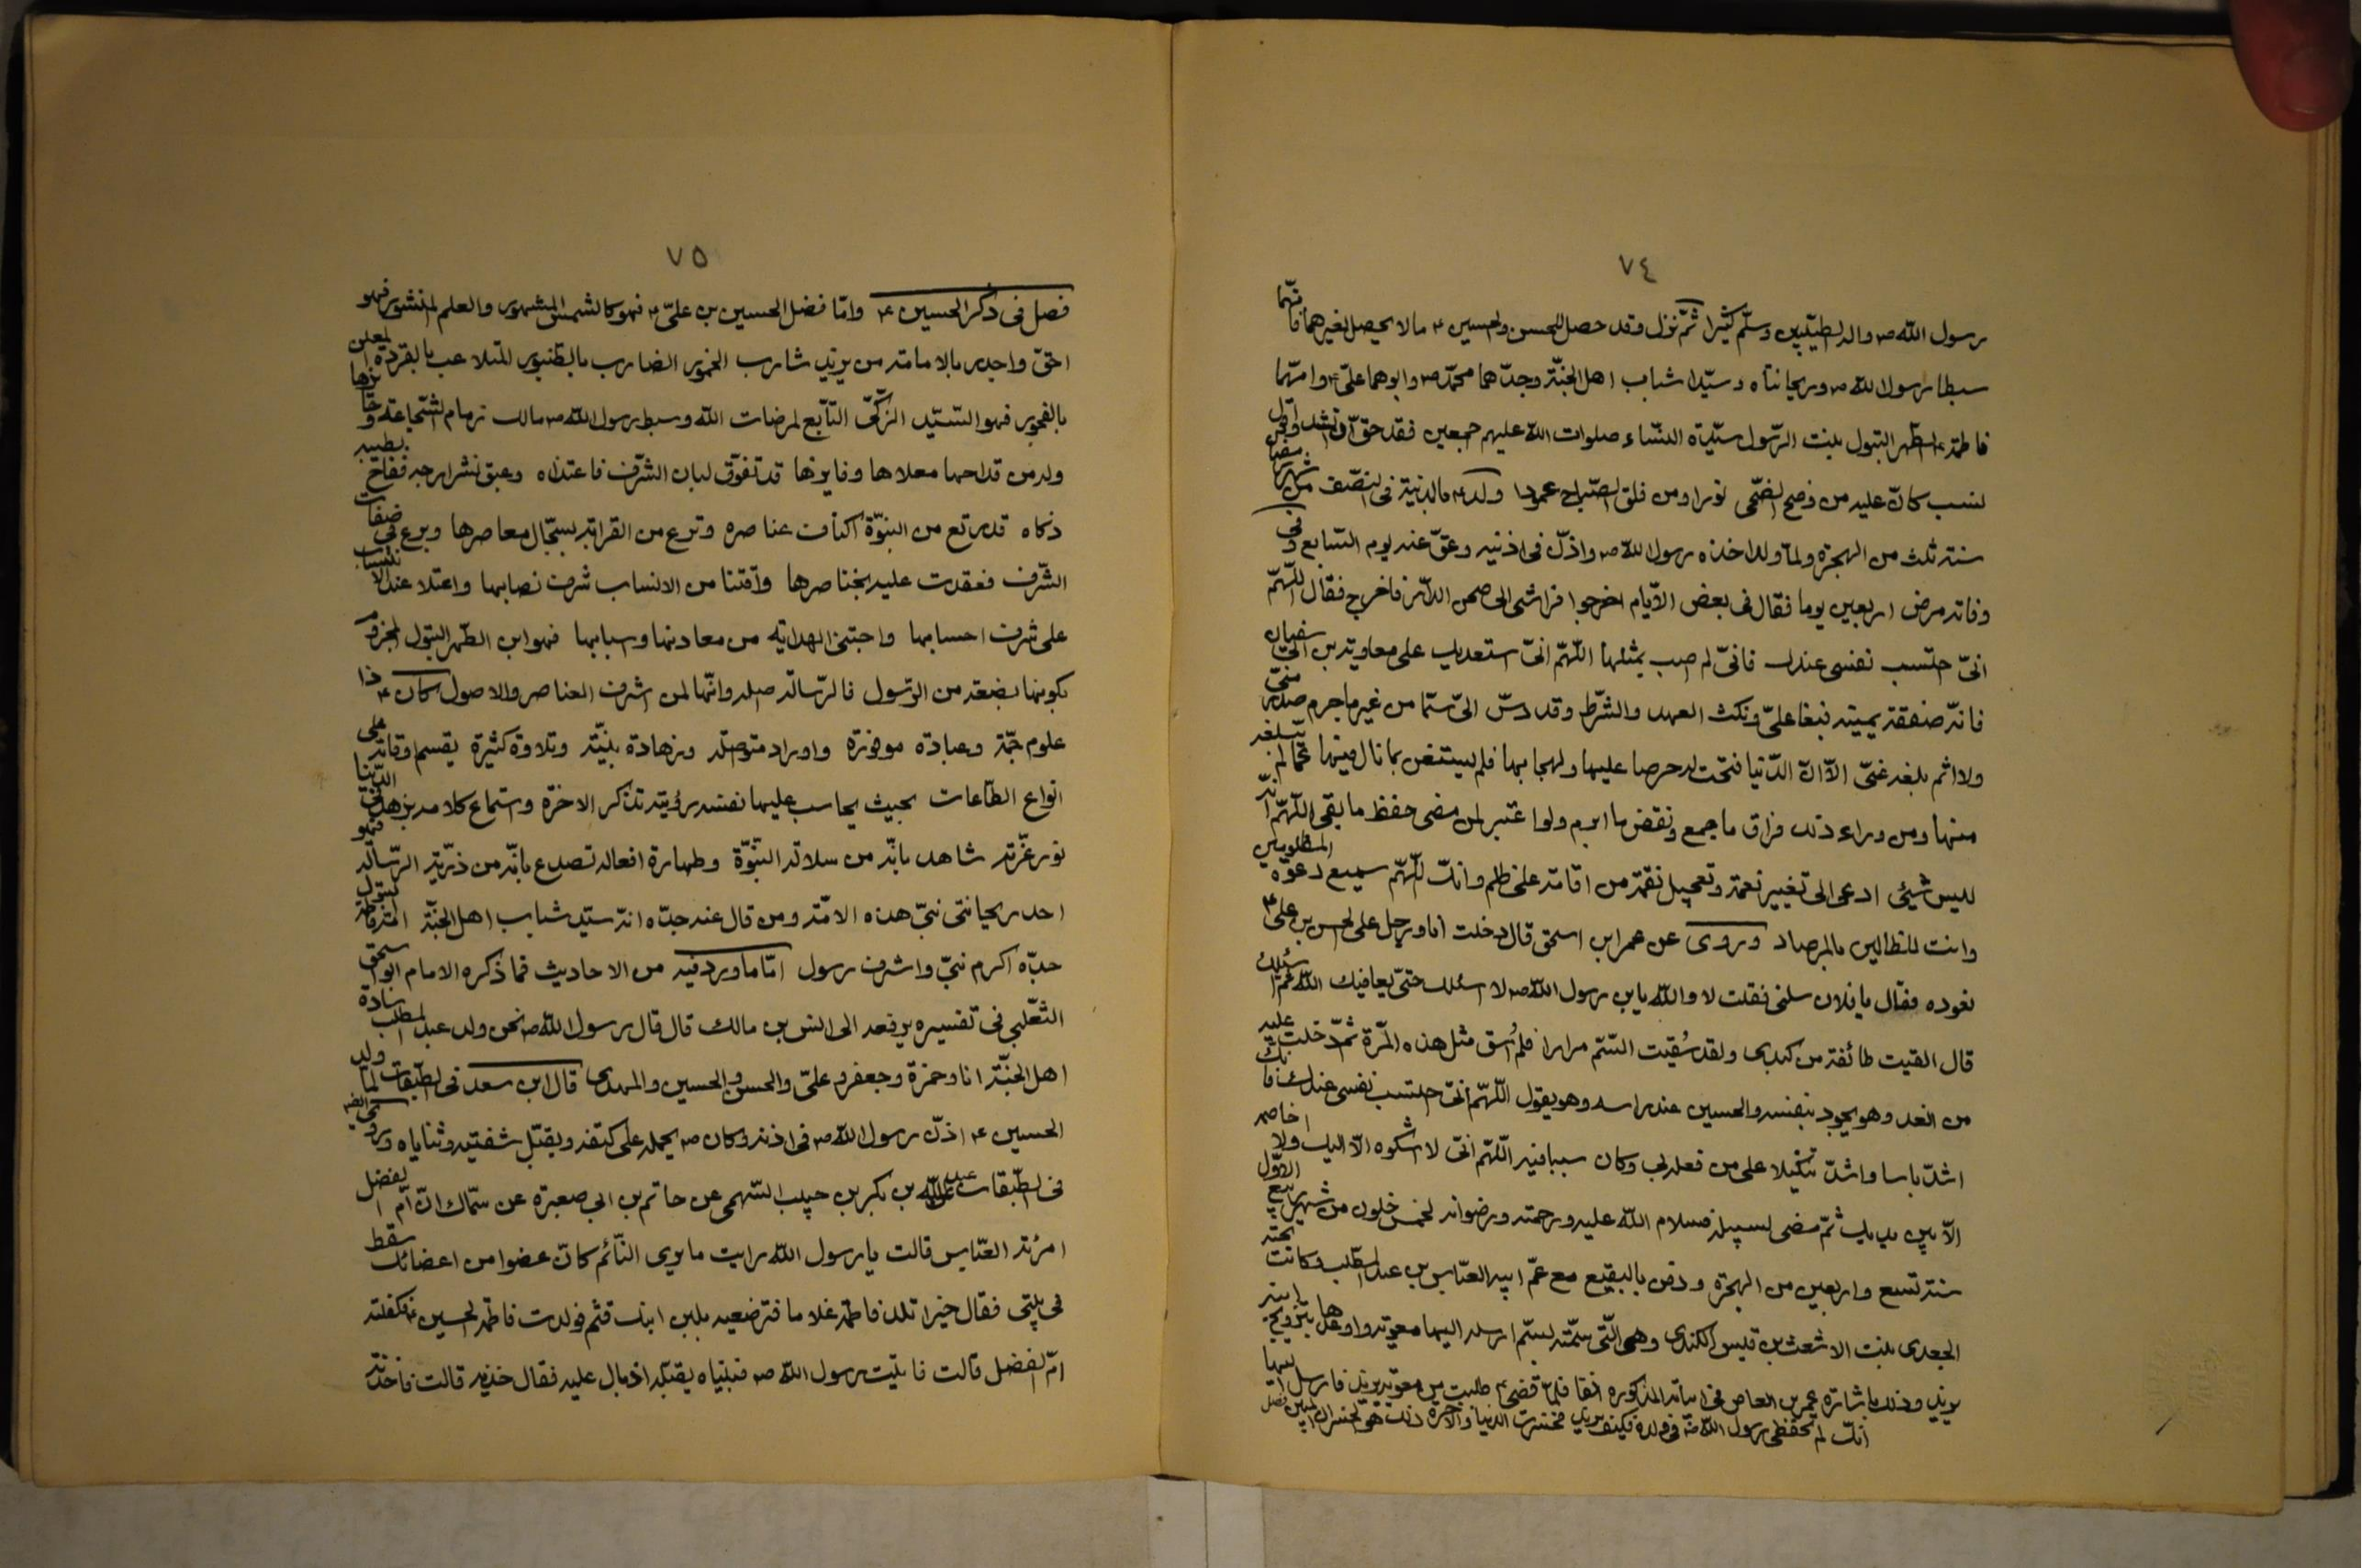 ٧٤
رسول الله ص واله الطيّبين وسلّم كثيرا ثمّ نزل وقد حصل للحسن والحسين ع مالا يحصل لغيرهما فانّهما
سبطا رسول الله ص وريحانتاه وسيّدا شباب اهل الجنّة وجدّهما محمّد ص وابوهما علىّ ع وامّهما
فاطمة ع الطّهر البتول بنت الرّسول سيّدة النّساء صلوات الله عليهم اجمعين فقد حقّ ان انشد واقول
نسب كانّ عليه من وضح الضّحى نورا ومن فلق الصّباح عمودا ولد ع بالمدينة فى النّصف من شهر رمضان
سنة ثلث من الهجرة ولمّا ولد اخذه رسول الله ص واذّن فى اذنيه وعقّ عنه يوم السّابع وفى
وفاته مرض اربعين يوما فقال فى بعض الايّام اخرجوا فراشى الى صحن الدّار فاخرج فقال اللّهمّ
انّى احتسب نفسى عندك فانّى لم اصب بمثلها اللّهمّ انّى استعديك على معاوية بن ابى سفيان
فانّه صفقة يمينه فبغا علىّ ونكث العهد والشّرط وقد دسّ الىّ سمّا من غير ما جرم صدر منّى
ولا اثم بلغه عنّى الّا انّ الدّنيا فتحت له حرصا عليها ولهجا بها فلم يستغن بما نال منها عمّا لم يبلغه
منها ومن وراء ذلك فراق ما جمع ونقض ما ابرم ولو اعتبر لمن مضى حفظ ما بقى اللّهمّ انّه
ليس شيئ ادعى الى تغيير نعمة وتعجيل نقمة من اقامة على ظلم وانّك اللّهمّ سميع دعوة المظلومين
وانت للظالمين بالمرصاد وروى عن عمر ابن اسحق قال دخلت انا ورجل على الحسن بن على ع
نعوده فقال يا فلان سلنى فقلت لا والله يابن رسول الله ص لا اسئلك حتى يعافيك الله ثمّ اسئلك
قال القيت طائفة من كبدى ولقد سُقيت السّم مرارا فلم اُسق مثل هذه المرّة ثمّ دخلت عليه
من الغد وهو يجود بنفسه والحسين عند راسه وهو يقول اللّهمّ انّى احتسب نفسى عندك فانّك
اشدّ باسا واشدّ تنكيلا على من فعله بى وكان سببا فيه اللّهمّ انّى لا اشكوه الّا اليك ولا اخاصمه
الّا بين يديك ثمّ مضى لسبيله فسلام الله عليه ورحمته ورضوانه لخمس خلون من شهر ربيع الاوّل
سنة تسع واربعين من الهجرة ودفن بالبقيع مع عمّ ابيه العبّاس بن عبد المطّلب وكانت تحته
الجعدى بنت الاشعث بن قيس الكندى وهى الّتى سمّته بسمّ ارسله اليها معوية واوعدها بتزويج ابنه
يزيد وذلك باشارة عمر بن العاص فى ابياته المذكوره انفا فلمّا قضى ع طلبت من معوية يزيد فارسل اليها
انّك لم تحفظى رسول الله ص فى ولده فكيف يزيد فخسرت الدّنيا والاخرة ذلك هو الخسران المبين فصل
٧٥
فصل فى ذكر الحسين ع وامّا فضل الحسين بن علىّ ع فهو كالشمس المشهور والعلم المنشور فهو
احقّ واجدر بالامامة من يزيد شارب الخمور الضارب بالطّنبور المتلاعب بالقردة المعلن
بالفجور فهو السّيّد الزّكىّ التّابع لمرضات الله وسبط رسول الله ص مالك زمام الشّجاعة و
وله من قداحها معلاها وفايزها قد تفوّق لبان الشّرف فاعتذاه وعبق نشر ارجه ففاح بطيبه
ذكاه قد رتع من النبوّة اكناف عناصره وترع من القرابة بسجال معاصرها وبرع فى صفات
الشّرف فعقدت عليه بخناصرها واقتنا من الانساب شرف نصابها واعتلا عند الانتساب
على شرف احسابها واجتنى الهداية من معادنها واسبابها فهو ابن الطّهر البتول المجزوم
بكونها بضعة من الرّسول فالرّسالة اصله وانّها لمن اشرف العناصر والاصول كان ع ذا
علوم جمّة وعبادة موفورة واوراد متوصّلة وزهادة بليّنة وتلاوة كثيرة يقسم اوقاته على
انواع الطّاعات بحيث يحاسب عليها نفسه رؤيته تذكر الاخرة واستماع كلامه يزهد فى الدّنيا
نور غرّته شاهد بانّه من سلالة النّبوّة وطهارة افعاله تصدع بانّه من ذرّية الرّسالة فهو
احد ريحانتى نبىّ هذه الامّة ومن قال عنه جدّه انّه سيّد شباب اهل الجنّة امّه فاطمة البتول
جدّه اكرم نبىّ واشرف رسول امّا ما ورد فيه من الاحاديث فما ذكره الامام ابو اسحق
الثّعلبى فى تفسيره يرفعه الى انس بن مالك قال قال رسول الله ص نحن ولد عبد المطّلب سادة
اهل الجنّة انا وحمزة وجعفر وعلىّ والحسن والحسين والمهدى قال ابن سعد فى الطّبقات لمّا ولد
الحسين ع اذّن رسول الله ص فى اذنه وكان ص يحمله على كتفه ويقبّل شفتيه وثناياه وروى ايضا
فى الطّبقات عن عبد الله بن بكر بن حبيب السّهمى عن حاتم بن ابى صعبرة عن سمّاك انّ امّ الفضل
امرئة العبّاس قالت يا رسول الله رايت ما يرى النّائم كانّ عضوا من اعضائك سقط
فى بيتى فقال خيرا تلد فاطمة غلاما فترضعيه بلبن ابنك قثم فولدت فاطمة الحسين ع فكفلته
امّ الفضل قالت فاتيت رسول الله ص فبيناه يقبّله اذ بال عليه فقال خذيه قالت فاخذته